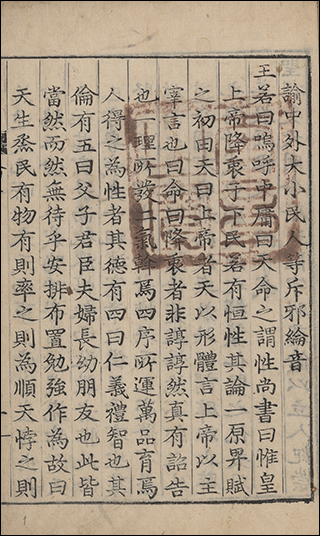 諭中外大小民人等斥邪綸音
王若曰嗚呼中庸曰天命之謂性尚書曰惟皇
上帝降衷于下民若有恒性其論一原畀賦
之初由天曰上帝者天以形體言上帝以主
宰言也曰命曰降衷者非諄諄然真有詔告
也一理所發二氣斡焉四序所運萬品育焉
人得之為性者其德有四曰仁義禮智也其
倫有五曰父子君臣夫婦長幼朋友也此皆
當然而然無待乎安排布置勉強作為故曰
天生烝民有物有則率之則為順天悖之則
1